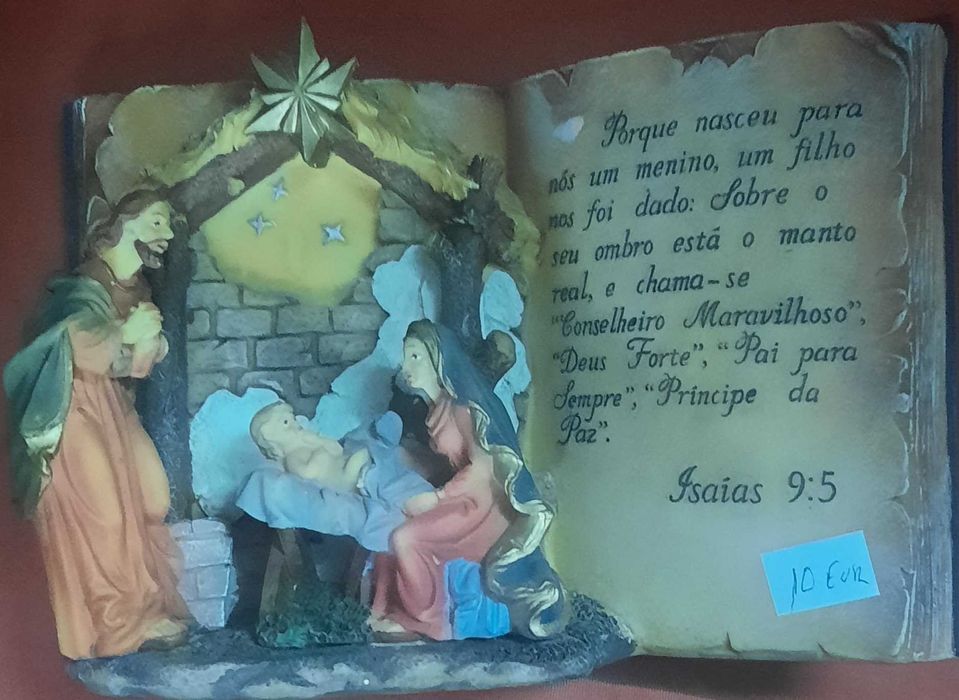 Porque nasceu para
nós um menino, um filho
nos foi dado: Sobre o
seu ombro está o manto
real, e chama-se
"Conselheiro Maravilhoso",
"Deus Forte", "Pai para
Sempre", "Príncipe da
Paz".
Isaías 9:5
10 EUR